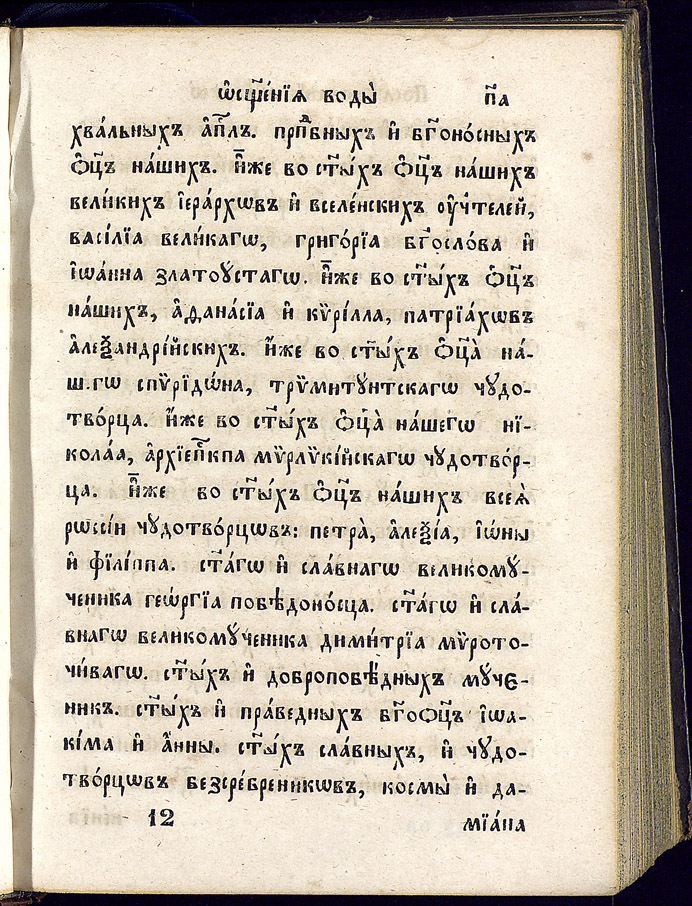 ѡ҆сщ҃е́нїѧ воды̀ п҃а
хва́льныхъ а҆п҃лъ. прпⷣбныхъ и҆ бг҃оно́сныхъ
ѻ҆ц҃ъ на́шихъ. и҆̀же во ст҃ы́хъ ѻ҆ц҃ъ на́шихъ
вели́кихъ і҆ера́рхѡвъ и҆ вселе́нскихъ ᲂу҆чт҃елей,
васі́лїа вели́кагѡ, григо́рїа бг҃осло́ва и҆
і҆ѡа́нна златоꙋ́стагѡ. и҆̀же во ст҃ы́хъ ѻ҆ц҃ъ
на́шихъ, а҆ѳана́сїа и҆ кѷрі́лла, патрїа́хѡвъ
а҆леѯандрі́йскихъ. и҆́же во ст҃ы́хъ ѻ҆ц҃а̀ на́-
ш.гѡ спѷрїдѡ́на, трѷмитꙋнтскагѡ чꙋдо-
тво́рца. и҆́же во ст҃ы́хъ ѻ҆ц҃а̀ на́шегѡ нї-
кола́а, а҆рхїепⷭ҇кпа мѷрлѷкі́йскагѡ чꙋдотво́р-
ца. и҆̀же во ст҃ы́хъ ѻ҆ц҃ъ на́шихъ всеѧ̀
рѡссі́и чꙋдотво́рцѡвъ: петра̀, а҆леѯі́а, і҆ѡ́ны
и҆ фїлі́ппа. ст҃а́гѡ и҆ сла́внагѡ великомꙋ́-
ченика геѡ́ргїа побѣдоно́сца. ст҃а́гѡ и҆ сла́-
внагѡ великомꙋ́ченика дими́трїа мѷрото-
чи́вагѡ. ст҃ы́хъ и҆ доброповѣ́дныхъ мꙋчє-
никъ. ст҃ы́хъ и҆ пра́ведныхъ бг҃оѻц҃ъ і҆ѡа-
кі́ма и҆ а҆́нны. ст҃ы́хъ сла́вныхъ, и҆ чꙋдо-
тво́рцѡвъ безсре́бреникѡвъ, космы̀ и҆ да-
12 мїа́на